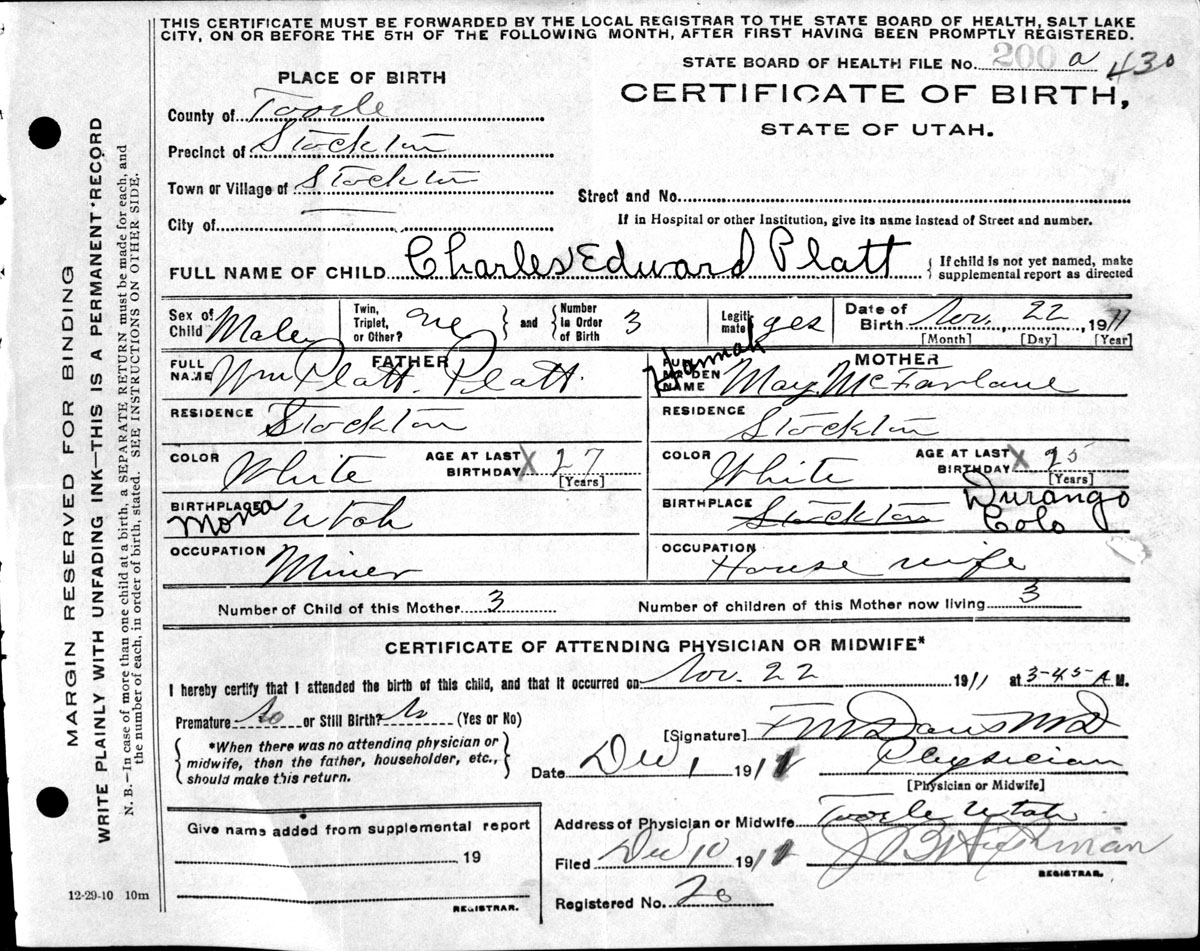 THIS CERTIFICATE MUST BE FORWARDED BY THE LOCAL REGISTRAR TO THE STATE BOARD OF HEALTH, SALT LAKE
CITY, ON OR BEFORE THE 5TH OF THE FOLLOWING MONTH, AFTER FIRST HAVING BEEN PROMPTLY REGISTERED.
STATE BOARD OF HEALTH FILE No. 200 a 430
PLACE OF BIRTH
CERTIFICATE OF BIRTH,
STATE OF UTAH.
County of Tooele
Precinct of Stockton
Town or Village of Stockton
Street and No.
City of
If in Hospital or other Institution, give its name instead of Street and number.
FULL NAME OF CHILD Charles Edward Platt { If child is not yet named, make supplemental report as directed
Sex of Child Male
Twin, Triplet, or Other?
and
Number in Order of Birth 3
Legitimate yes
Date of Birth Nov. 22, 1911
[Month] [Day] [Year]
FATHER
FULL NAME Wm Platt. Platt.
MOTHER
FULL MAIDEN NAME Hannah May McFarlane
RESIDENCE Stockton
RESIDENCE Stockton
COLOR White
AGE AT LAST BIRTHDAY X 27
[Years]
COLOR White
AGE AT LAST BIRTHDAY X 25
[Years]
BIRTHPLACE Mona Utah
BIRTHPLACE Stockton Durango Colo
OCCUPATION Miner
OCCUPATION House wife
Number of Child of this Mother 3
Number of children of this Mother now living 3
CERTIFICATE OF ATTENDING PHYSICIAN OR MIDWIFE*
I hereby certify that I attended the birth of this child, and that it occurred on Nov. 22 1911 at 3-45-A M.
Premature No or Still Birth? No (Yes or No)
*When there was no attending physician or
midwife, then the father, householder, etc.,
should make this return.
[Signature] F M Davis M D
Date Dec 1 1911
Physician
[Physician or Midwife]
Give name added from supplemental report
19
REGISTRAR.
Address of Physician or Midwife Tooele Utah
Filed Dec 10 1911
REGISTRAR.
Registered No. 20
12-29-10 10m
MARGIN RESERVED FOR BINDING
WRITE PLAINLY WITH UNFADING INK—THIS IS A PERMANENT RECORD
N. B.—In case of more than one child at a birth, a SEPARATE RETURN must be made for each, and
the number of each, in order of birth, stated. SEE INSTRUCTIONS ON OTHER SIDE.